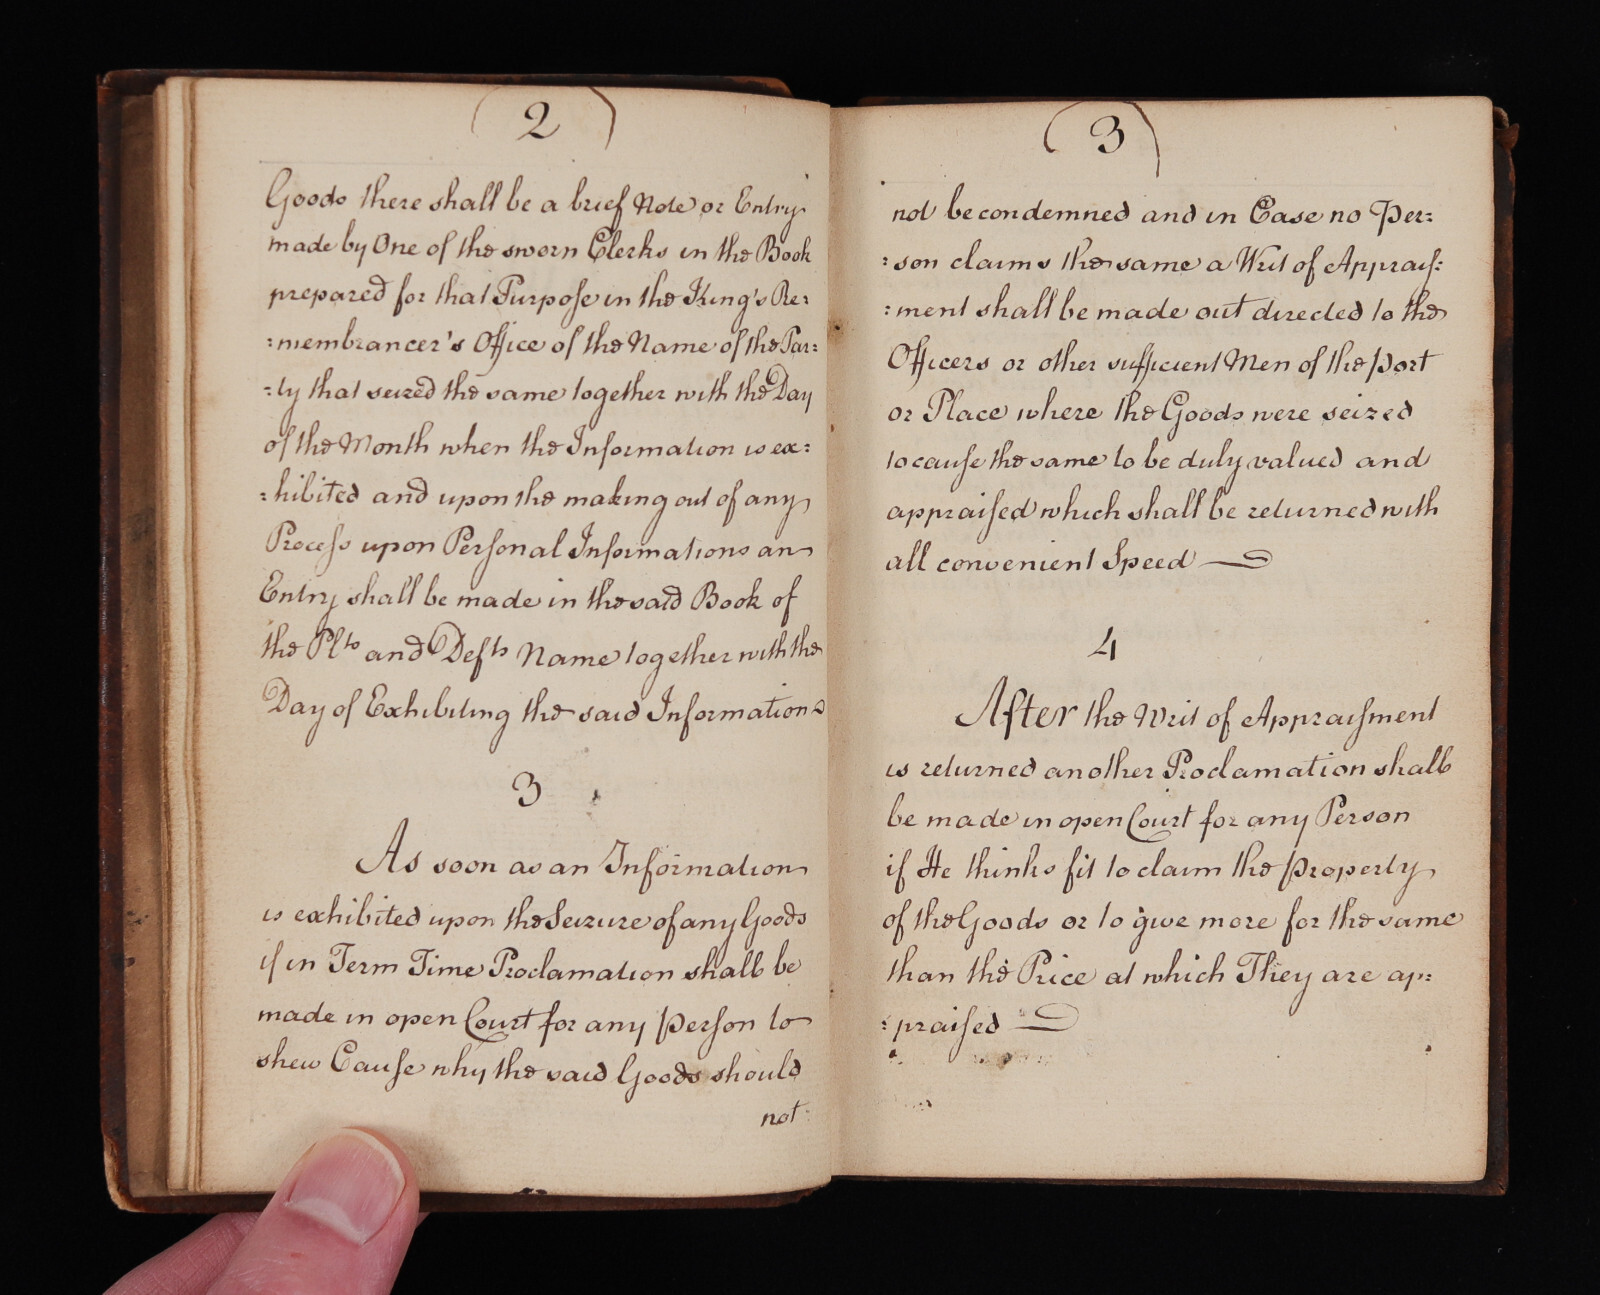 (2)
Goods there shall be a brief Note or Entry
made by One of the sworn Clerks in the Book
prepared for that Purpose in the King's Re:
:membrancer's Office of the Name of the Par:
:ty that seized the same together with the Day
of the Month when the Information is ex:
:hibited and upon the making out of any
Process upon Personal Informations an
Entry shall be made in the said Book of
the Plts and Defts Name together with the
Day of Exhibiting the said Informations
3
As soon as an Information
is exhibited upon the Seizure of any Goods
if in Term Time Proclamation shall be
made in open Court for any Person to
shew Cause why the said Goods should
not
(3)
not be condemned and in Case no Per:
:son claims the same a Writ of Appraise:
:ment shall be made out directed to the
Officers or other sufficient Men of the Port
or Place where the Goods were seized
to cause the same to be duly valued and
appraised which shall be returned with
all convenient Speed
4
After the Writ of Appraisment
is returned another Proclamation shall
be made in open Court for any Person
if He thinks fit to claim the Property
of the Goods or to give more for the same
than the Price at which They are ap:
:praised